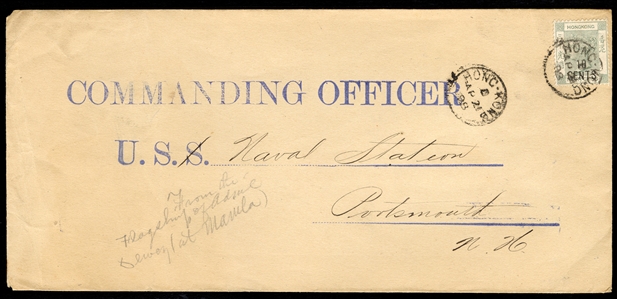 HONGKONG
10
CENTS
HONG-KONG
HONG-KONG
B
AP 21
98
COMMANDING OFFICER
U.S.S. Naval Station
Portsmouth
N. H.
From the
Flagship of Adml
Dewey (at Manila)